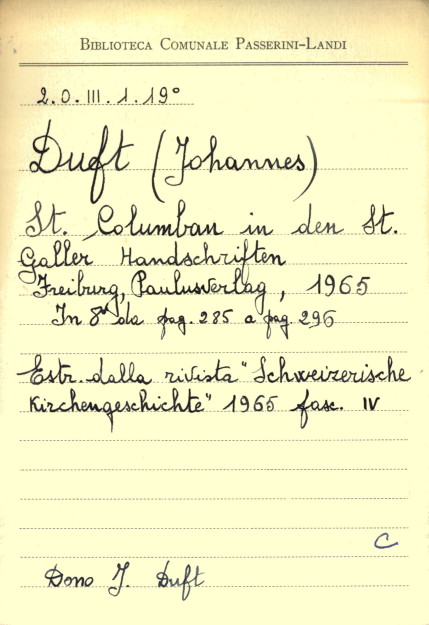 BIBLIOTECA COMUNALE PASSERINI-LANDI
2.O.III.1.19°
Duft (Johannes)
St. Columban in den St.
Galler Handschriften
Freiburg, Paulusverlag, 1965
In 8° da pag. 285 a pag. 296
Estr. dalla rivista "Schweizerische
Kirchengeschichte" 1965 fasc. IV
C
Dono J. Duft